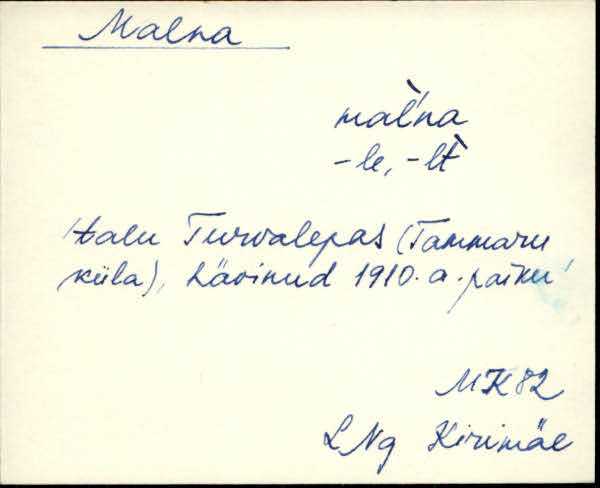 Malna
mal'na
-le, -lt
talu Turvalepas (Tammaru
küla), hävinud 1910. a. paiku
MK 82
LNg Kirimäe